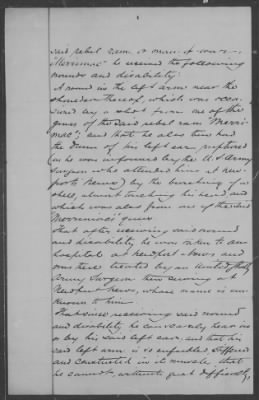 said rebel ram or man of war
"Merrimac" he received the following
wounds and disability:
A wound in the left arm near the
shoulder thereof, which was occa-
sioned by a shot from one of the
guns of the said rebel ram "Merri-
mac"; and that he also then had
the drum of his left ear ruptured
(as he was informed by the U.S. Army
Surgeon who attended him at New-
ports News) by the bursting of a
shell, almost touching his head and
which was also from one of the said
Merrimac's guns.
That after receiving said wound
and disability he was taken to an
hospital at Newport News and
was there treated by an United States
Army Surgeon then serving at
Newport News, whose name is un-
known to him.
That since receiving said wound
and disability he can scarcely hear in
or by his said left ear and that his
said left arm is so enfeebled stiffened
and contracted in its muscle that
he cannot, without great difficulty,